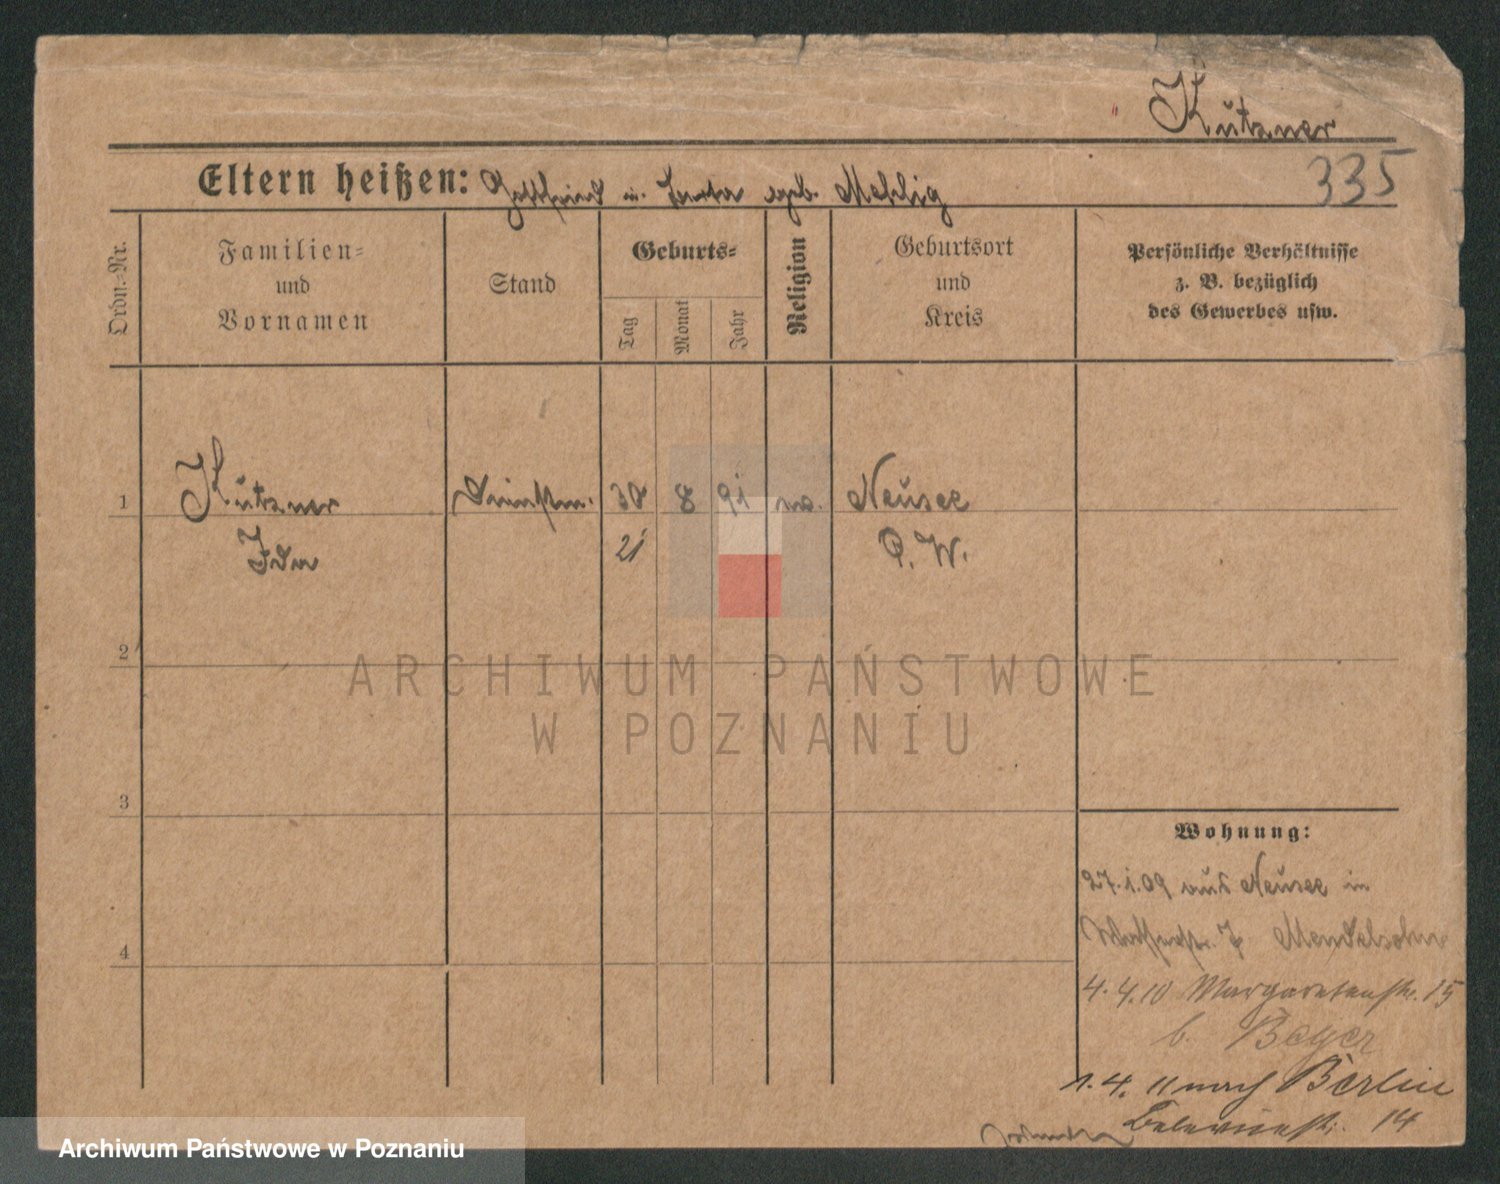 Kutzner
335
Eltern heißen: Gottfried u. geb. Mehlig
Ordn.-Nr.
Familien- und Vornamen
Stand
Geburts-
Tag
Monat
Jahr
Religion
Geburtsort und Kreis
Persönliche Verhältnisse z. B. bezüglich des Gewerbes usw.
1
Kutzner 30 8 91 Neusee
Ida 21 P. W.
2
3
4
ARCHIWUM PAŃSTWOWE
W POZNANIU
Wohnung:
27.1.09 aus Neusee in
Mendelsohn
4.4.10 Margaretenstr. 15
b. Beyer
1.4.11 nach Berlin
14
Archiwum Państwowe w Poznaniu